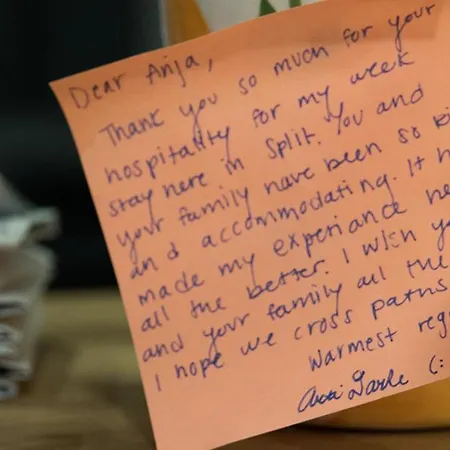 Dear Anja,
Thank you so much for your
hospitality for my week
stay here in Split. You and
your family have been so
and accommodating. It
made my experiance
all the better. I wish
and your family all the
I hope we cross paths
Warmest
(: